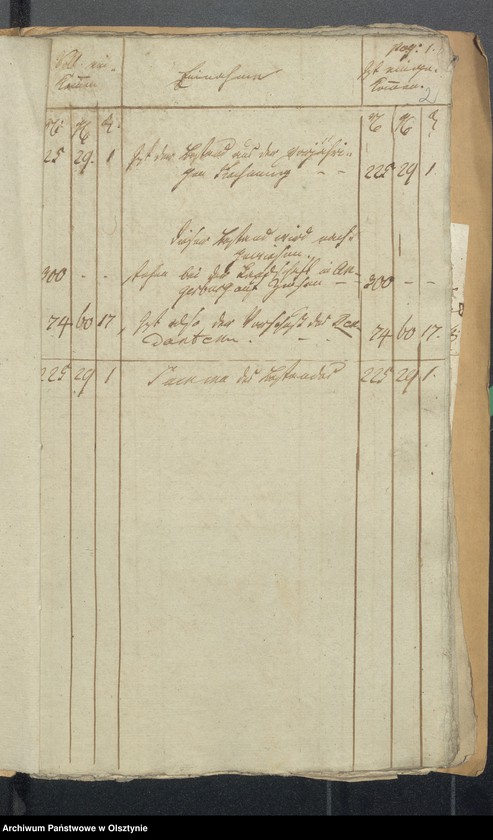 pag: 1.
Soll ein-
kommen
Einnahme
Ist einge-
kommen.
2
25 29. 1 Ist der Bestand aus der vorjähri-
gen Rechnung - - 225 29 1.
Dieser Bestand wird nach-
gewiesen.
300 - - stehen bei der Landschaft in An-
gerburg auf Zinsen - 300 - -
74 60 17 Ist also der Vorschuß des Ren-
danten. - - 74 60 17.
225 29 1 Summa des Bestandes 225 29 1.
Archiwum Państwowe w Olsztynie